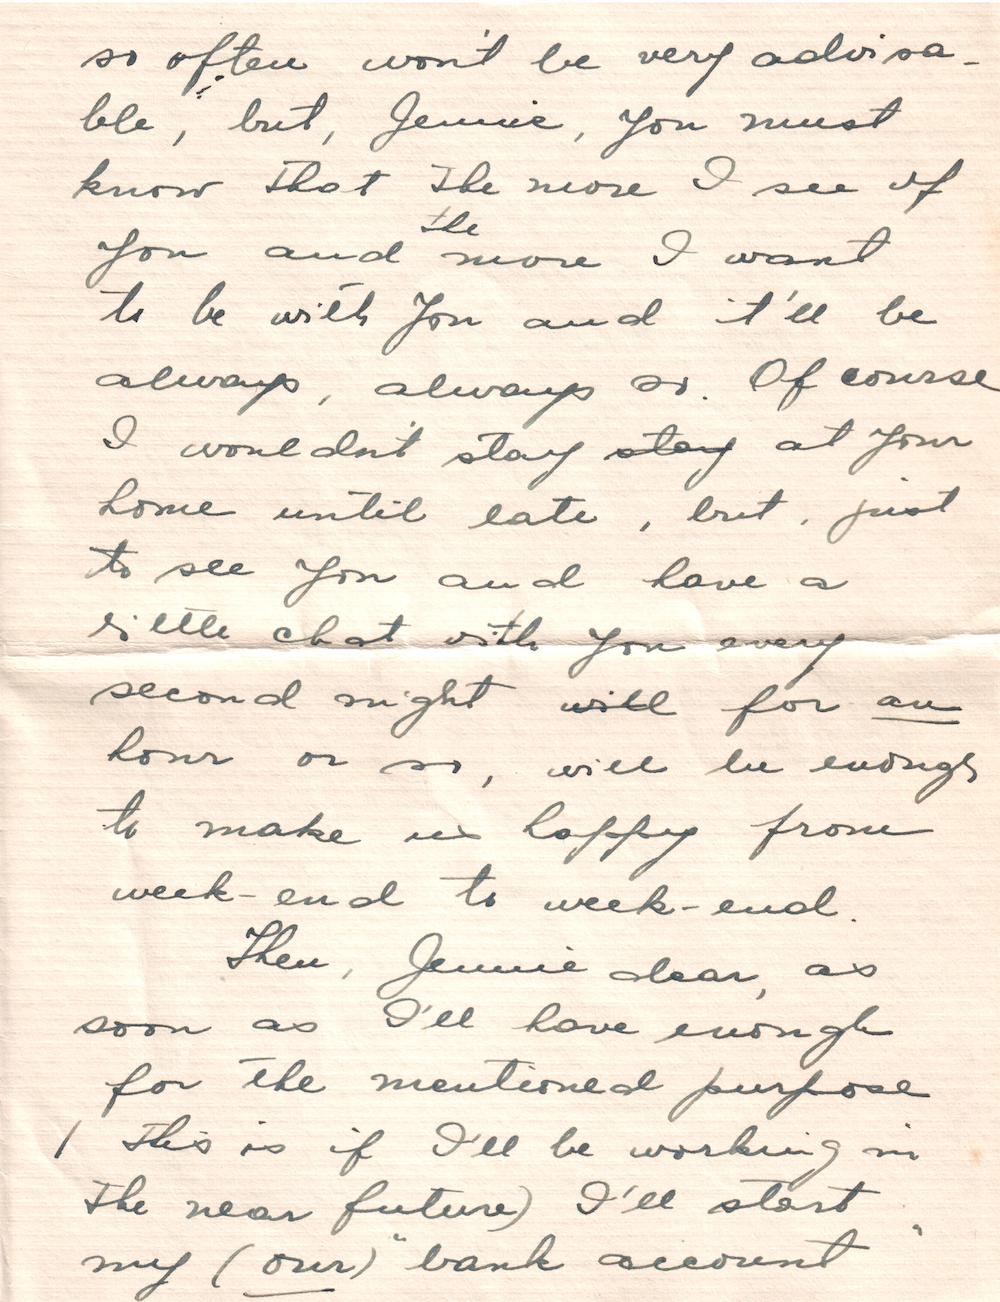 so often won't be very advisa-
ble, but, Jennie, you must
know that the more I see of
you and the more I want
to be with you and it'll be
always, always so. Of course
I wouldn't stay stay at your
home until late, but, just
to see you and have a
little chat with you every
second night will for an
hour or so, will be enough
to make us happy from
week-end to week-end.
Then, Jennie dear, as
soon as I'll have enough
for the mentioned purpose
( this is if I'll be working in
the near future) I'll start
my (our) "bank account"